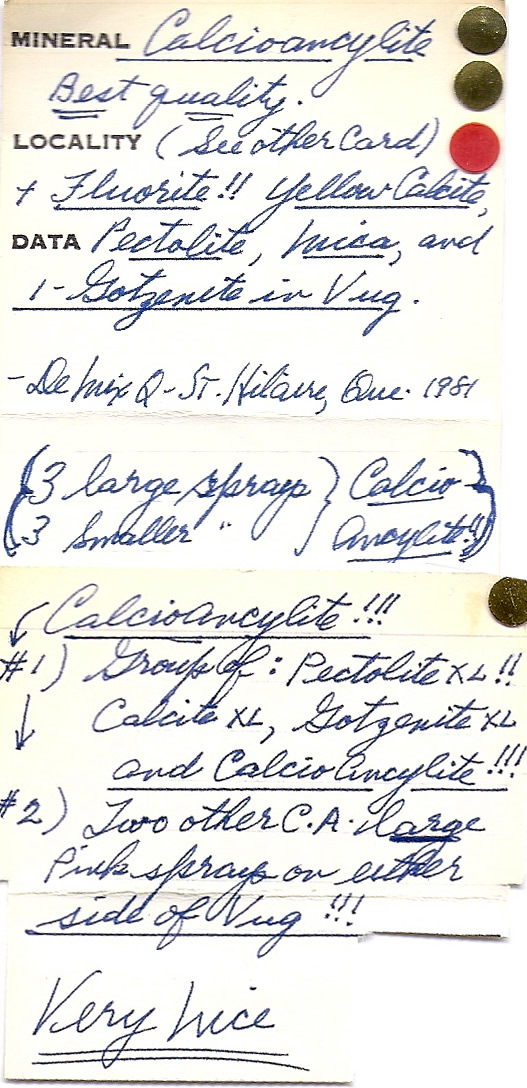 MINERAL Calcioancylite
Best quality.
LOCALITY (See other Card)
+ Fluorite!! Yellow Calcite,
DATA Pectolite, Mica, and
1-Gotzenite in Vug.
- De Mix Q - St. Hilaire, Que. 1981
{3 large sprays } Calcio-}
{3 Smaller " } Ancylite!!}
Calcioancylite!!!
#1) Group of: Pectolite XL!!
Calcite XL, Gotzenite XL
and CalcioAncylite!!!
#2) Two other C.A. large
Pink sprays on either
side of Vug!!!
Very Nice